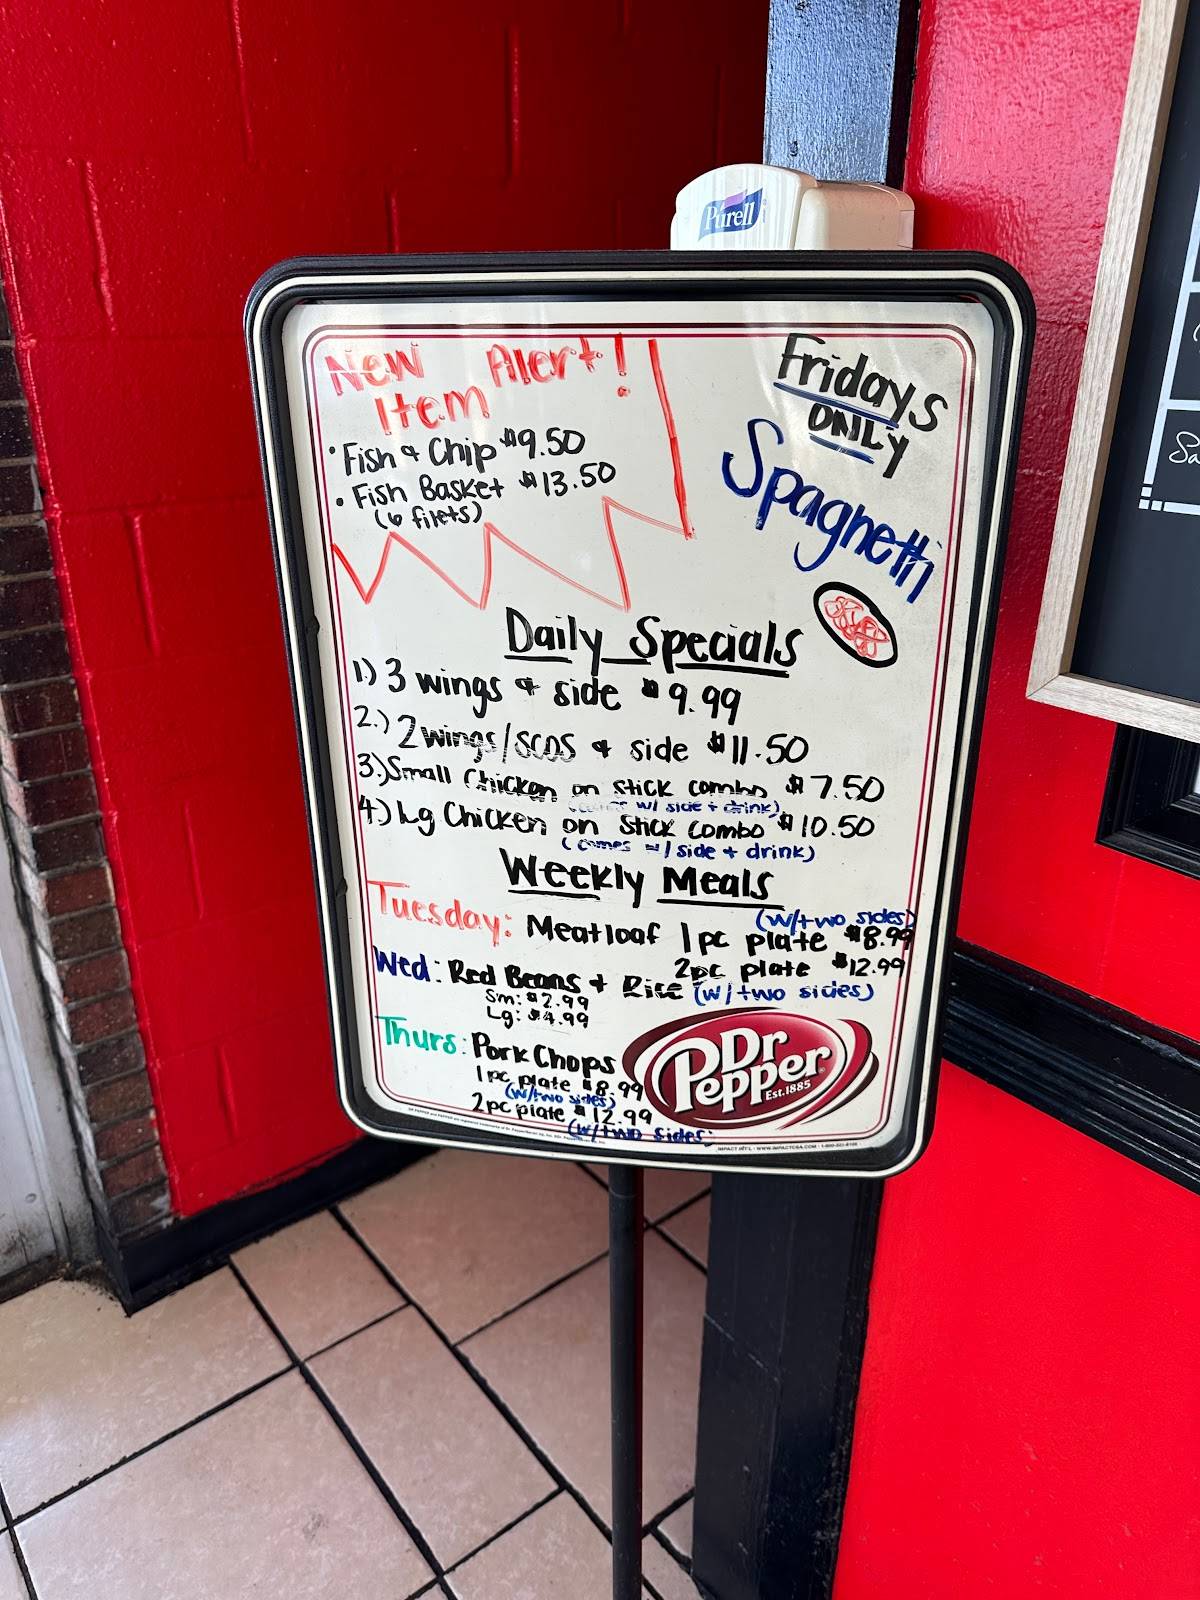 Purell
New Item Alert!
• Fish & Chip $9.50
• Fish Basket $13.50
(6 filets)
Fridays
ONLY
Spaghetti
Daily Specials
1.) 3 wings & side $9.99
2.) 2 wings/SCOS & side $11.50
3.) Small Chicken on stick combo $7.50
(comes w/ side + drink)
4.) Lg Chicken on stick combo $10.50
(comes w/ side + drink)
Weekly Meals
(w/two sides)
Tuesday: Meatloaf 1pc plate $8.99
2pc plate $12.99
Wed: Red Beans + Rice (w/two sides)
Sm: $2.99
Lg: $4.99
Thurs: Pork Chops
1pc plate $8.99
(w/two sides)
2pc plate $12.99
(w/two sides)
Dr
Pepper
Est.1885
Sa